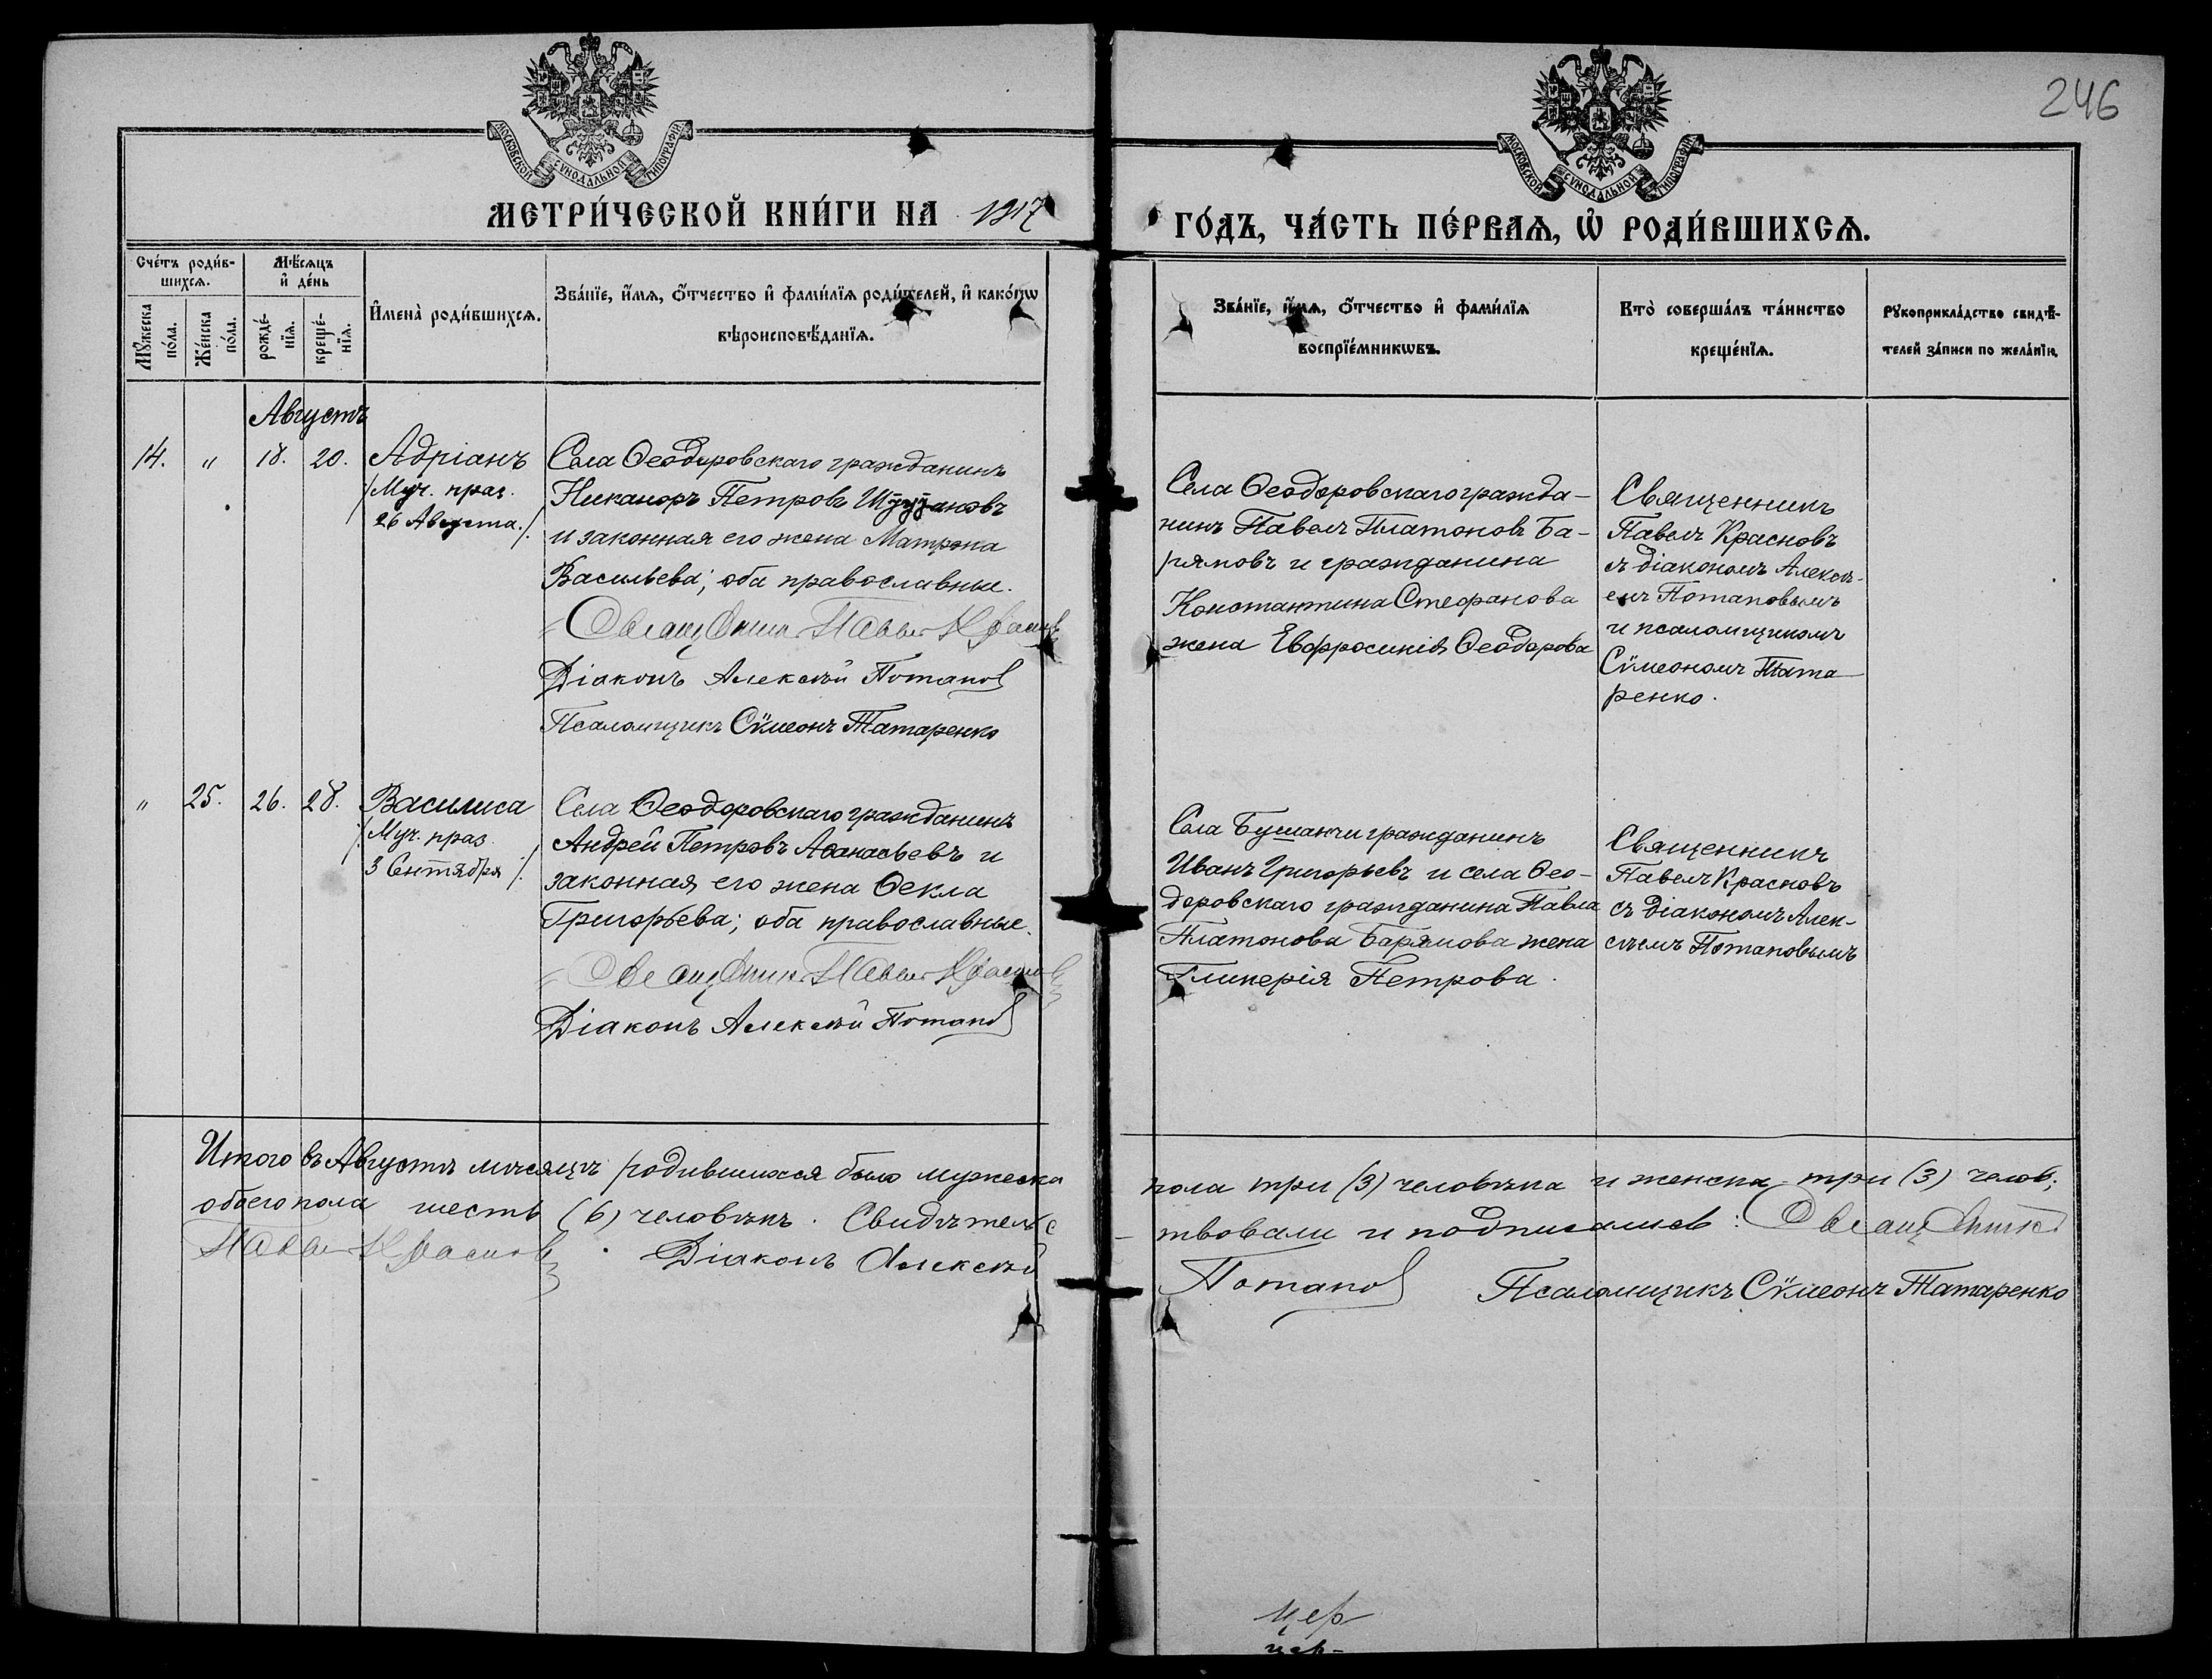 246
МОСКОВСКОЙ СѴНОДАЛЬНОЙ ТИПОГРАФІИ
МОСКОВСКОЙ СѴНОДАЛЬНОЙ ТИПОГРАФІИ
МЕТРИ́ЧЕСКОЙ КНИ́ГИ НА 1917
ГО́ДЪ, ЧА́СТЬ ПЕ́РВАѦ, Ѡ҆ РОДИ́ВШИХСѦ.
Сче́тъ роди́в-
шихсѧ.
Мꙋ́жеска по́ла.
Же́нска по́ла.
Мѣ́сѧцъ
и҆ де́нь
рожде́-
нїѧ.
креще́-
нїѧ.
И҆мена̀ роди́вшихсѧ.
Зва́нїе, и҆́мѧ, ѻ҆́тчество и҆ фами́лїѧ роди́телей, и҆ како́гѡ
вѣроисповѣ́данїѧ.
Зва́нїе, и҆́мѧ, ѻ҆́тчество и҆ фами́лїѧ
воспрїе́мникѡвъ.
Кто̀ соверша́лъ та́инство
креще́нїѧ.
Рꙋкоприкла́дство свидѣ́-
телей за́писи по жела́нїю.
Августъ
14. " 18. 20. Адріанъ
/Муч. праз.
26 Августа./.
Села Ѳеодоровскаго гражданинъ
Никаноръ Петровъ
и законная его жена Матрона
Васильева; оба православные.
Священникъ Павелъ Красновъ
Діаконъ Алексѣй Потапов
Псаломщикъ Сѵмеонъ Татаренко
Села Ѳеодоровскаго гражда-
нинъ Павелъ Платоновъ Ба-
рямовъ и гражданина
Константина Стефанова
жена Евфросинія Ѳеодорова
Священникъ
Павелъ Красновъ
съ діакономъ Алексѣ-
емъ Потаповымъ
и псаломщикомъ
Сѵмеономъ Тата-
ренко.
" 25. 26. 28. Василиса
/Муч. праз.
3 Сентября/.
Села Ѳеодоровскаго гражданинъ
Андрей Петровъ Аѳанасьевъ и
законная его жена Ѳекла
Григорьева; оба православные.
Священникъ Павелъ Красновъ
Діаконъ Алексѣй Потапов
Села Бушанчи гражданинъ
Иванъ Григорьевъ и села Ѳео-
доровскаго гражданина Павла
Платонова Барямова жена
Гликерія Петрова.
Священникъ
Павелъ Красновъ
съ діакономъ Алек-
сѣемъ Потаповымъ
Итого въ Августѣ мѣсяцѣ родившихся было мужеска пола три (3) человѣка и женска три (3) челов;
обоего пола шесть (6) человѣкъ. Свидѣтельс-
твовали и подписались: Священникъ
Павелъ Красновъ. Діаконъ Алексѣй
Потапов Псаломщикъ Сѵмеонъ Татаренко
цер
цер-